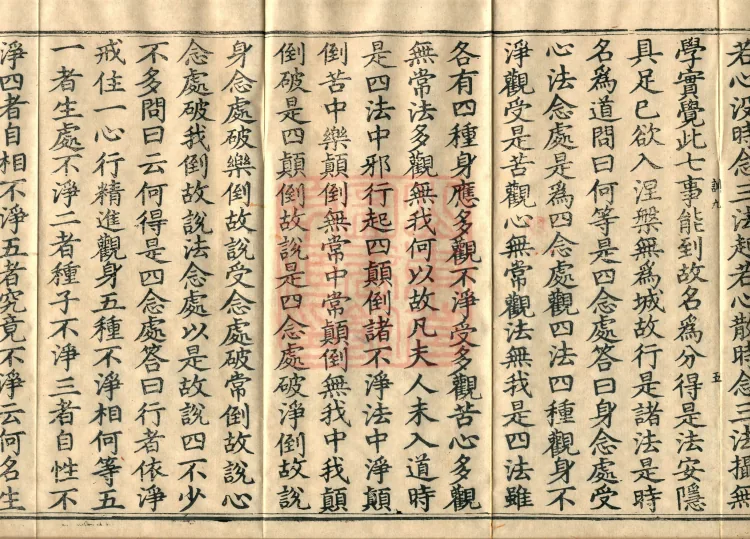 若心沒時念三法起若心散時念三法攝無
學實覺此七事能到故名為分得是法安隱
具足已欲入涅槃無為城故行是諸法是時
名為道問曰何等是四念處答曰身念處受
心法念處是為四念處觀四法四種觀身不
淨觀受是苦觀心無常觀法無我是四法雖
各有四種身應多觀不淨受多觀苦心多觀
無常法多觀無我何以故凡夫人未入道時
是四法中邪行起四顛倒諸不淨法中淨顛
倒苦中樂顛倒無常中常顛倒無我中我顛
倒破是四顛倒故說是四念處破淨倒故說
身念處破樂倒故說受念處破常倒故說心
念處破我倒故說法念處以是故說四不少
不多問曰云何得是四念處答曰行者依淨
戒住一心行精進觀身五種不淨相何等五
一者生處不淨二者種子不淨三者自性不
淨四者自相不淨五者究竟不淨云何名生